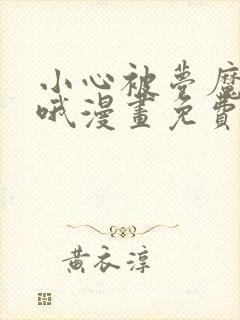 小心被夢魔
哦漫畫免費
黃衣淳